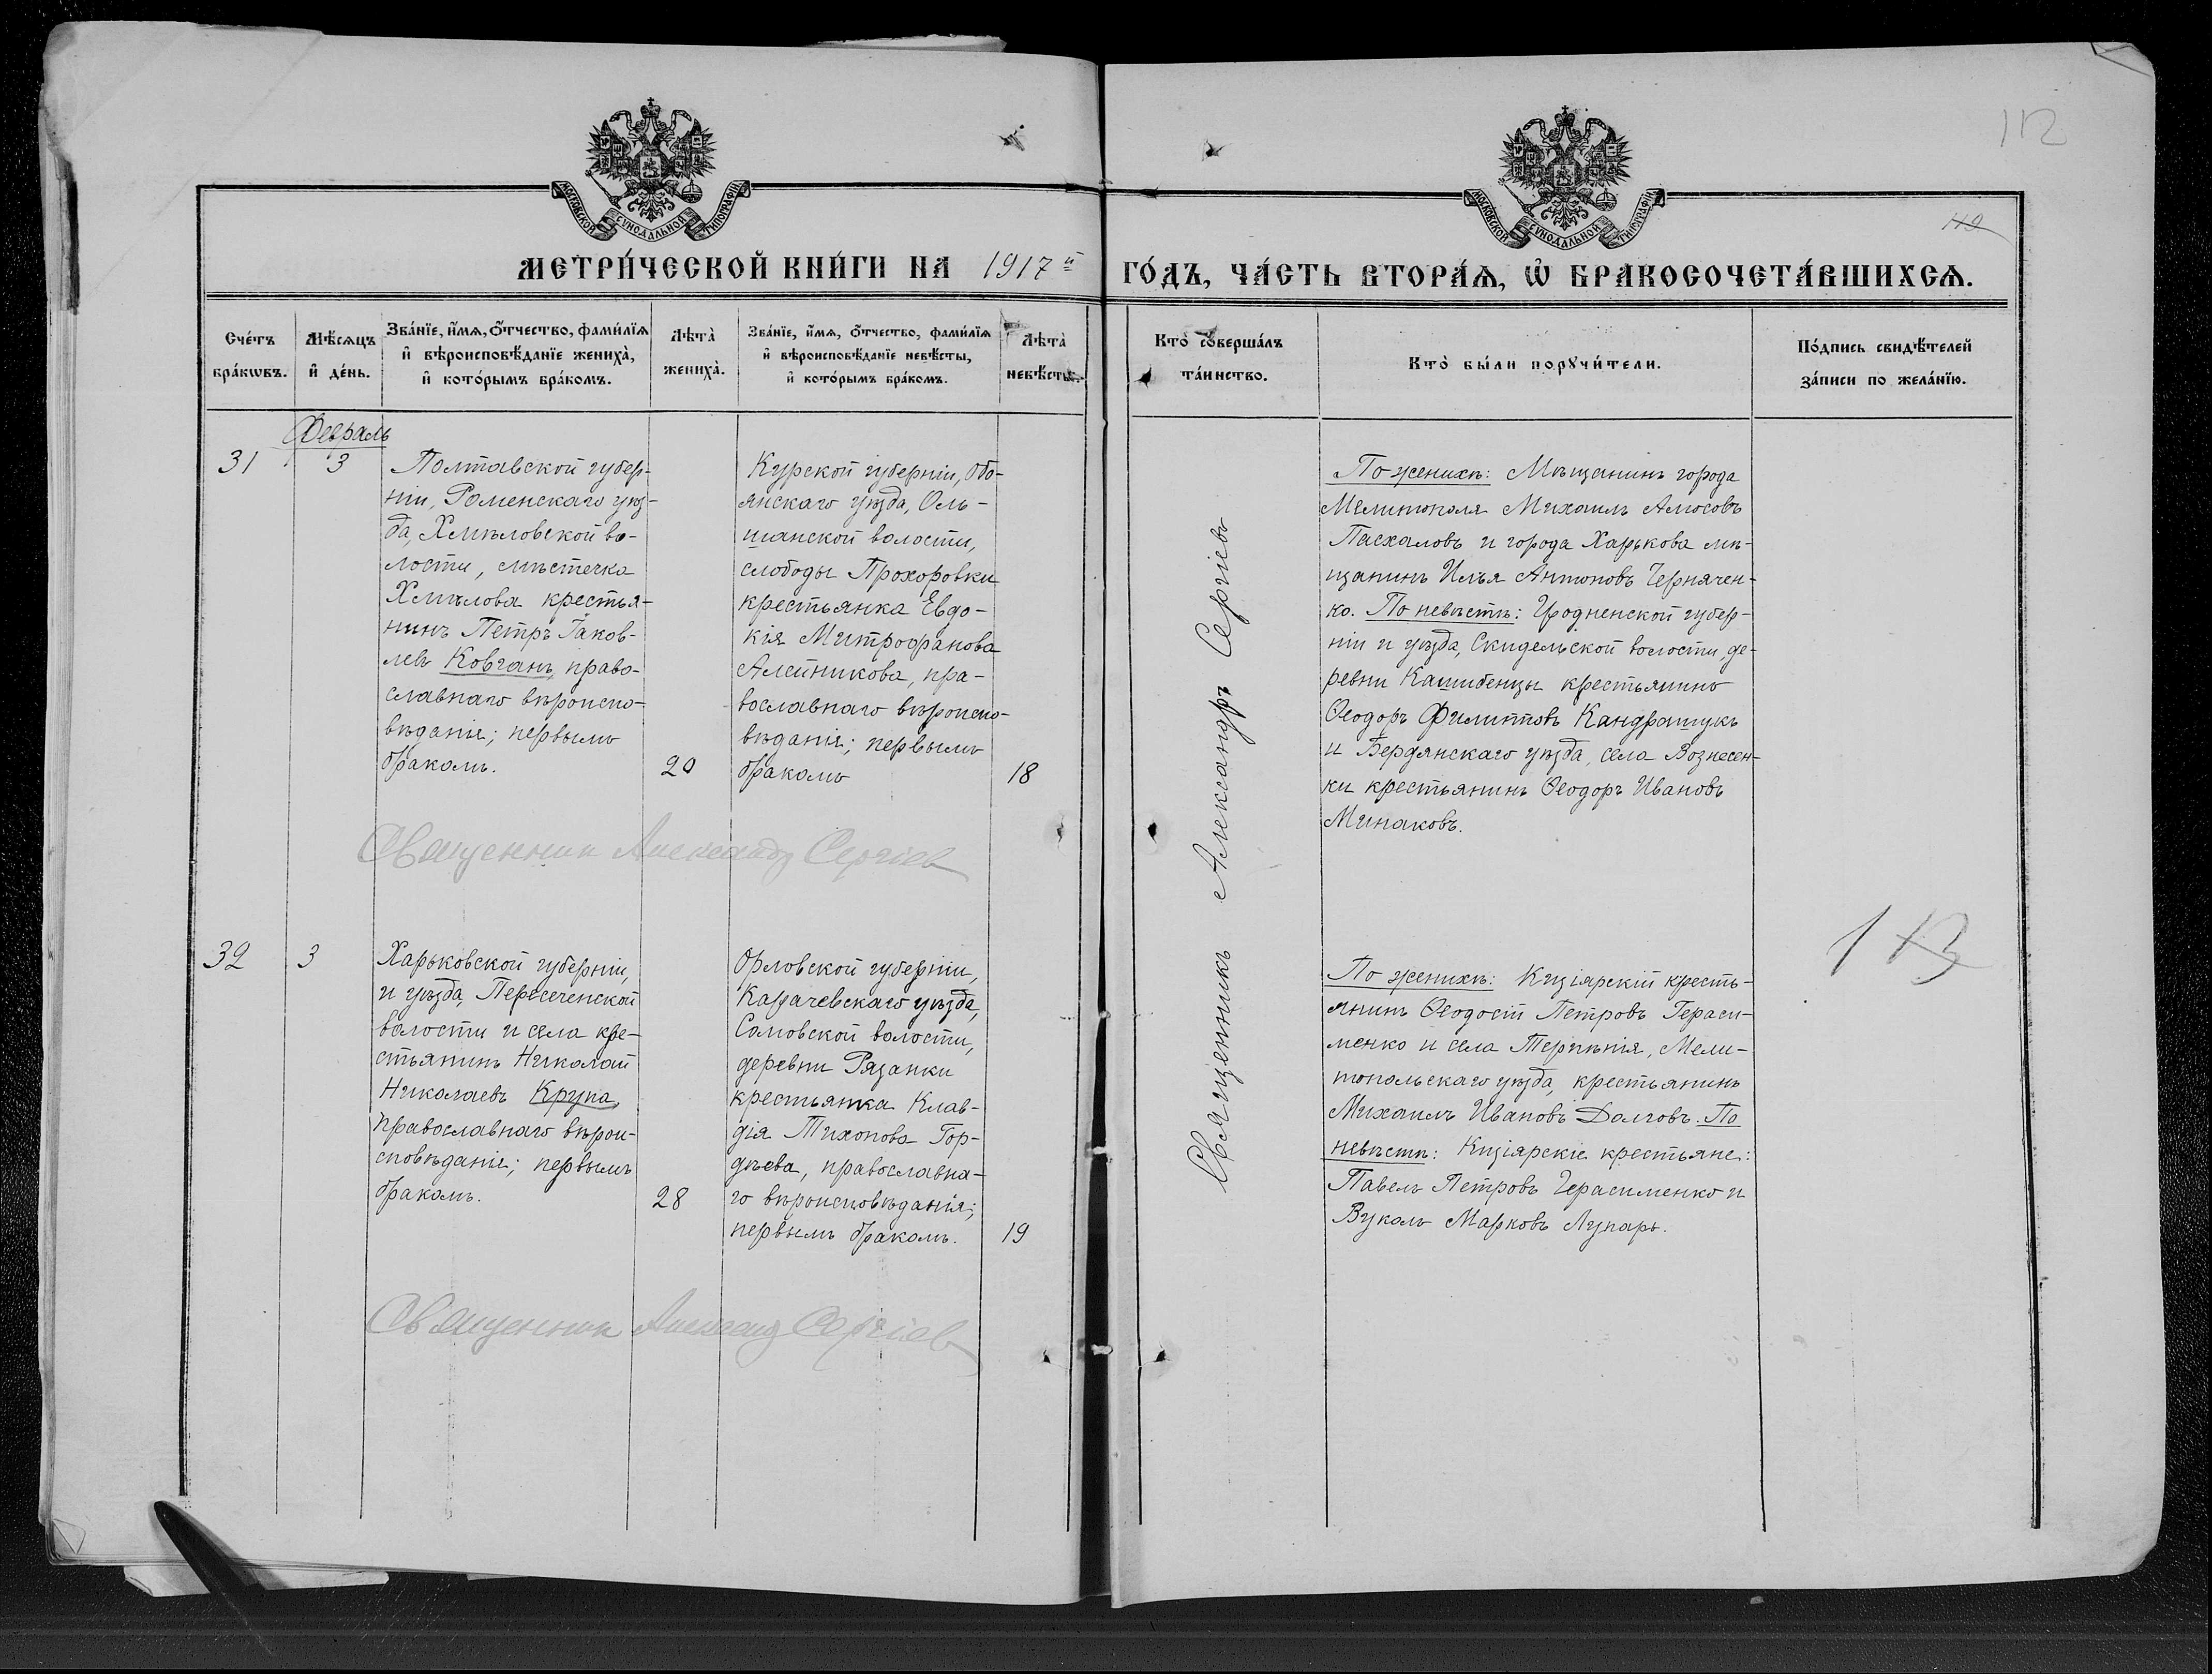 112
МОСКОВСКОЙ СУНОДАЛЬНОЙ ТИПОГРАФІИ
МОСКОВСКОЙ СУНОДАЛЬНОЙ ТИПОГРАФІИ
МЕТРИ́ЧЕСКОЙ КНИ́ГИ НА 1917й ГО́ДЪ, ЧА́СТЬ ВТОРА́Ѧ, Ѽ БРАКОСОЧЕТА́ВШИХСѦ.
Сче́тъ
бра́кѡвъ.
Мѣ́сѧцъ
и҆ де́нь.
Зва́нїе, и҆́мѧ, ѻ҆́тчество, фами́лїѧ
и҆ вѣроисповѣ́данїе жениха̀,
и҆ кото́рымъ бра́комъ.
Лѣта̀
жениха̀.
Зва́нїе, и҆́мѧ, ѻ҆́тчество, фами́лїѧ
и҆ вѣроисповѣ́данїе невѣ́сты,
и҆ кото́рымъ бра́комъ.
Лѣта̀
невѣ́сты.
Кто̀ соверша́лъ
та́инство.
Кто̀ бы́ли порꙋчи́тели.
По́дпись свидѣ́телей
за́писи по жела́нїю.
Февраль
31
3
Полтавской губер-
ніи, Роменскаго уѣз-
да, Хмѣловской во-
лости, мѣстечка
Хмѣлова крестья-
нинъ Петръ Іаков-
левъ Ковганъ, право-
славнаго вѣроиспо-
вѣданія; первымъ
бракомъ.
20
Курской губерніи, Обо-
янскаго уѣзда, Оль-
шанской волости,
слободы Прохоровки
крестьянка Евдо-
кія Митрофанова
Алейникова, пра-
вославнаго вѣроиспо-
вѣданія; первымъ
бракомъ
18
Священникъ Александръ Сергіевъ
По женихѣ: Мѣщанинъ города
Мелитополя Михаилъ Амосовъ
Пасхаловъ и города Харькова мѣ-
щанинъ Илья Антоновъ Чернячен-
ко. По невѣстѣ: Гродненской губер-
ніи и уѣзда, Скидельской волости, де-
ревни Кашибенцы крестьянинъ
Ѳеодоръ Филипповъ Кандрашукъ
и Бердянскаго уѣзда, села Вознесен-
ки крестьянинъ Ѳеодоръ Ивановъ
Минаковъ.
Священникъ Александръ Сергіевъ
32
3
Харьковской губерніи,
и уѣзда, Пересеченской
волости и села кре-
стьянинъ Николай
Николаевъ Крупа,
православнаго вѣрои-
сповѣданія; первымъ
бракомъ.
28
Орловской губерніи,
Карачевскаго уѣзда,
Самовской волости,
деревни Рязанки
крестьянка Клав-
дія Тихонова Гор-
дѣева, православна-
го вѣроисповѣданія;
первымъ бракомъ.
19
По женихѣ: Кизіярскій кресть-
янинъ Ѳеодосій Петровъ Гераси-
менко и села Терпѣнія, Мели-
топольскаго уѣзда, крестьянинъ
Михаилъ Ивановъ Долговъ. По
невѣстѣ: Кизіярскіе крестьяне:
Павелъ Петровъ Герасименко и
Вуколъ Марковъ Лупарь.
113
Священникъ Александръ Сергіевъ